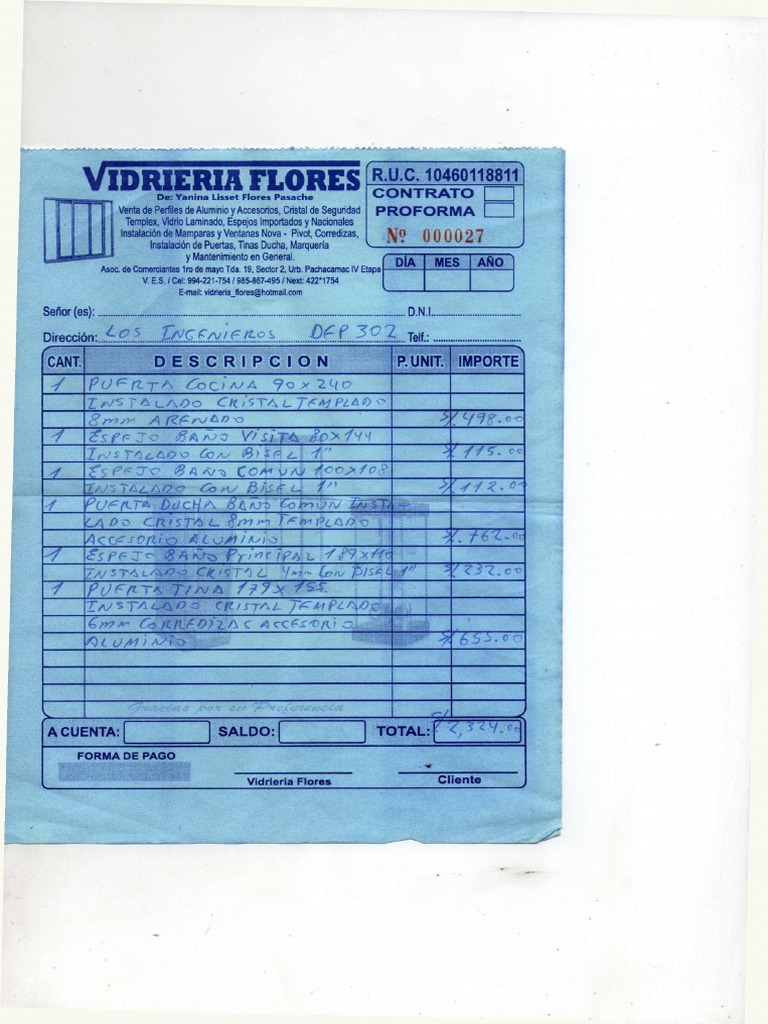 VIDRIERIA FLORES
De: Yanina Lisset Flores Pasache
Venta de Perfiles de Aluminio y Accesorios, Cristal de Seguridad
Templex, Vidrio Laminado, Espejos Importados y Nacionales
Instalación de Mamparas y Ventanas Nova - Pivot, Corredizas,
Instalación de Puertas, Tinas Ducha, Marquería
y Mantenimiento en General.
Asoc. de Comerciantes 1ro de mayo Tda. 19, Sector 2, Urb. Pachacamac IV Etapa
V. E.S. / Cel: 994-221-754 / 985-867-495 / Next: 422*1754
E-mail: vidrieria_flores@hotmail.com
R.U.C. 10460118811
CONTRATO
PROFORMA
Nº 000027
DÍA MES AÑO
Señor (es): D.N.I.
Dirección: LOS INGENIEROS DEP 302 Telf.:
CANT. DESCRIPCION P.UNIT. IMPORTE
1 PUERTA COCINA 90x240
INSTALADO CRISTAL TEMPLADO
8mm ARENADO S/.498.00
1 ESPEJO BAÑO VISITA 80x144
INSTALADO CON BISEL 1" S/.115.00
1 ESPEJO BAÑO COMUN 100x108
INSTALADO CON BISEL 1" S/.112.00
1 PUERTA DUCHA BAÑO COMUN INSTA-
LADO CRISTAL 8mm TEMPLADO
ACCESORIO ALUMINIO S/.762.00
1 ESPEJO BAÑO PRINCIPAL 189x110
INSTALADO CRISTAL 4mm CON BISEL 1" S/.232.00
1 PUERTA TINA 179x155
INSTALADO CRISTAL TEMPLADO
6mm CORREDIZAS ACCESORIO
ALUMINIO S/.655.00
Gracias por su Preferencia
A CUENTA: SALDO: TOTAL: S/2,324.00
FORMA DE PAGO
Vidriería Flores Cliente